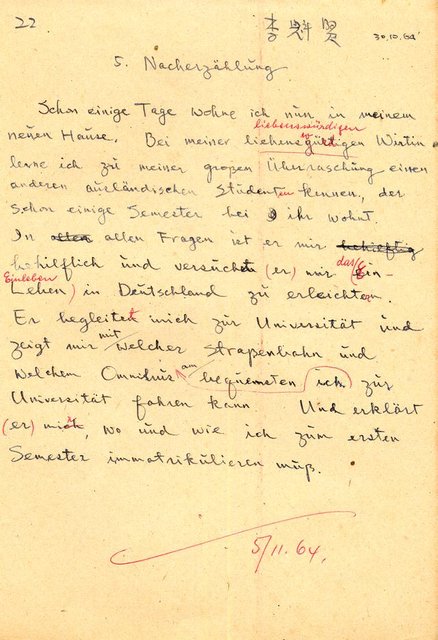 22
李魁賢
30.10.64
5. Nacherzählung
Schon einige Tage wohne ich nun in meinem
liebenswürdigen
neuen Hause. Bei meiner liebensgürtigen Wirtin
lerne ich zu meiner großen Überraschung einen
anderen ausländischen Studenten kennen, der
schon einige Semester bei ihr wohnt.
In allen allen Fragen ist er mir
behilflich und versucht (er) mir das Ein-
Einleben
Leben) in Deutschland zu erleichtern.
Er begleitet mich zur Universität und
zeigt mir mit welcher Straßenbahn und
welchem Omnibus am bequemsten ich zur
Universität fahren kann. Und erklärt
(er) mir, wo und wie ich zum ersten
Semester immatrikulieren muß.
5/11.64.